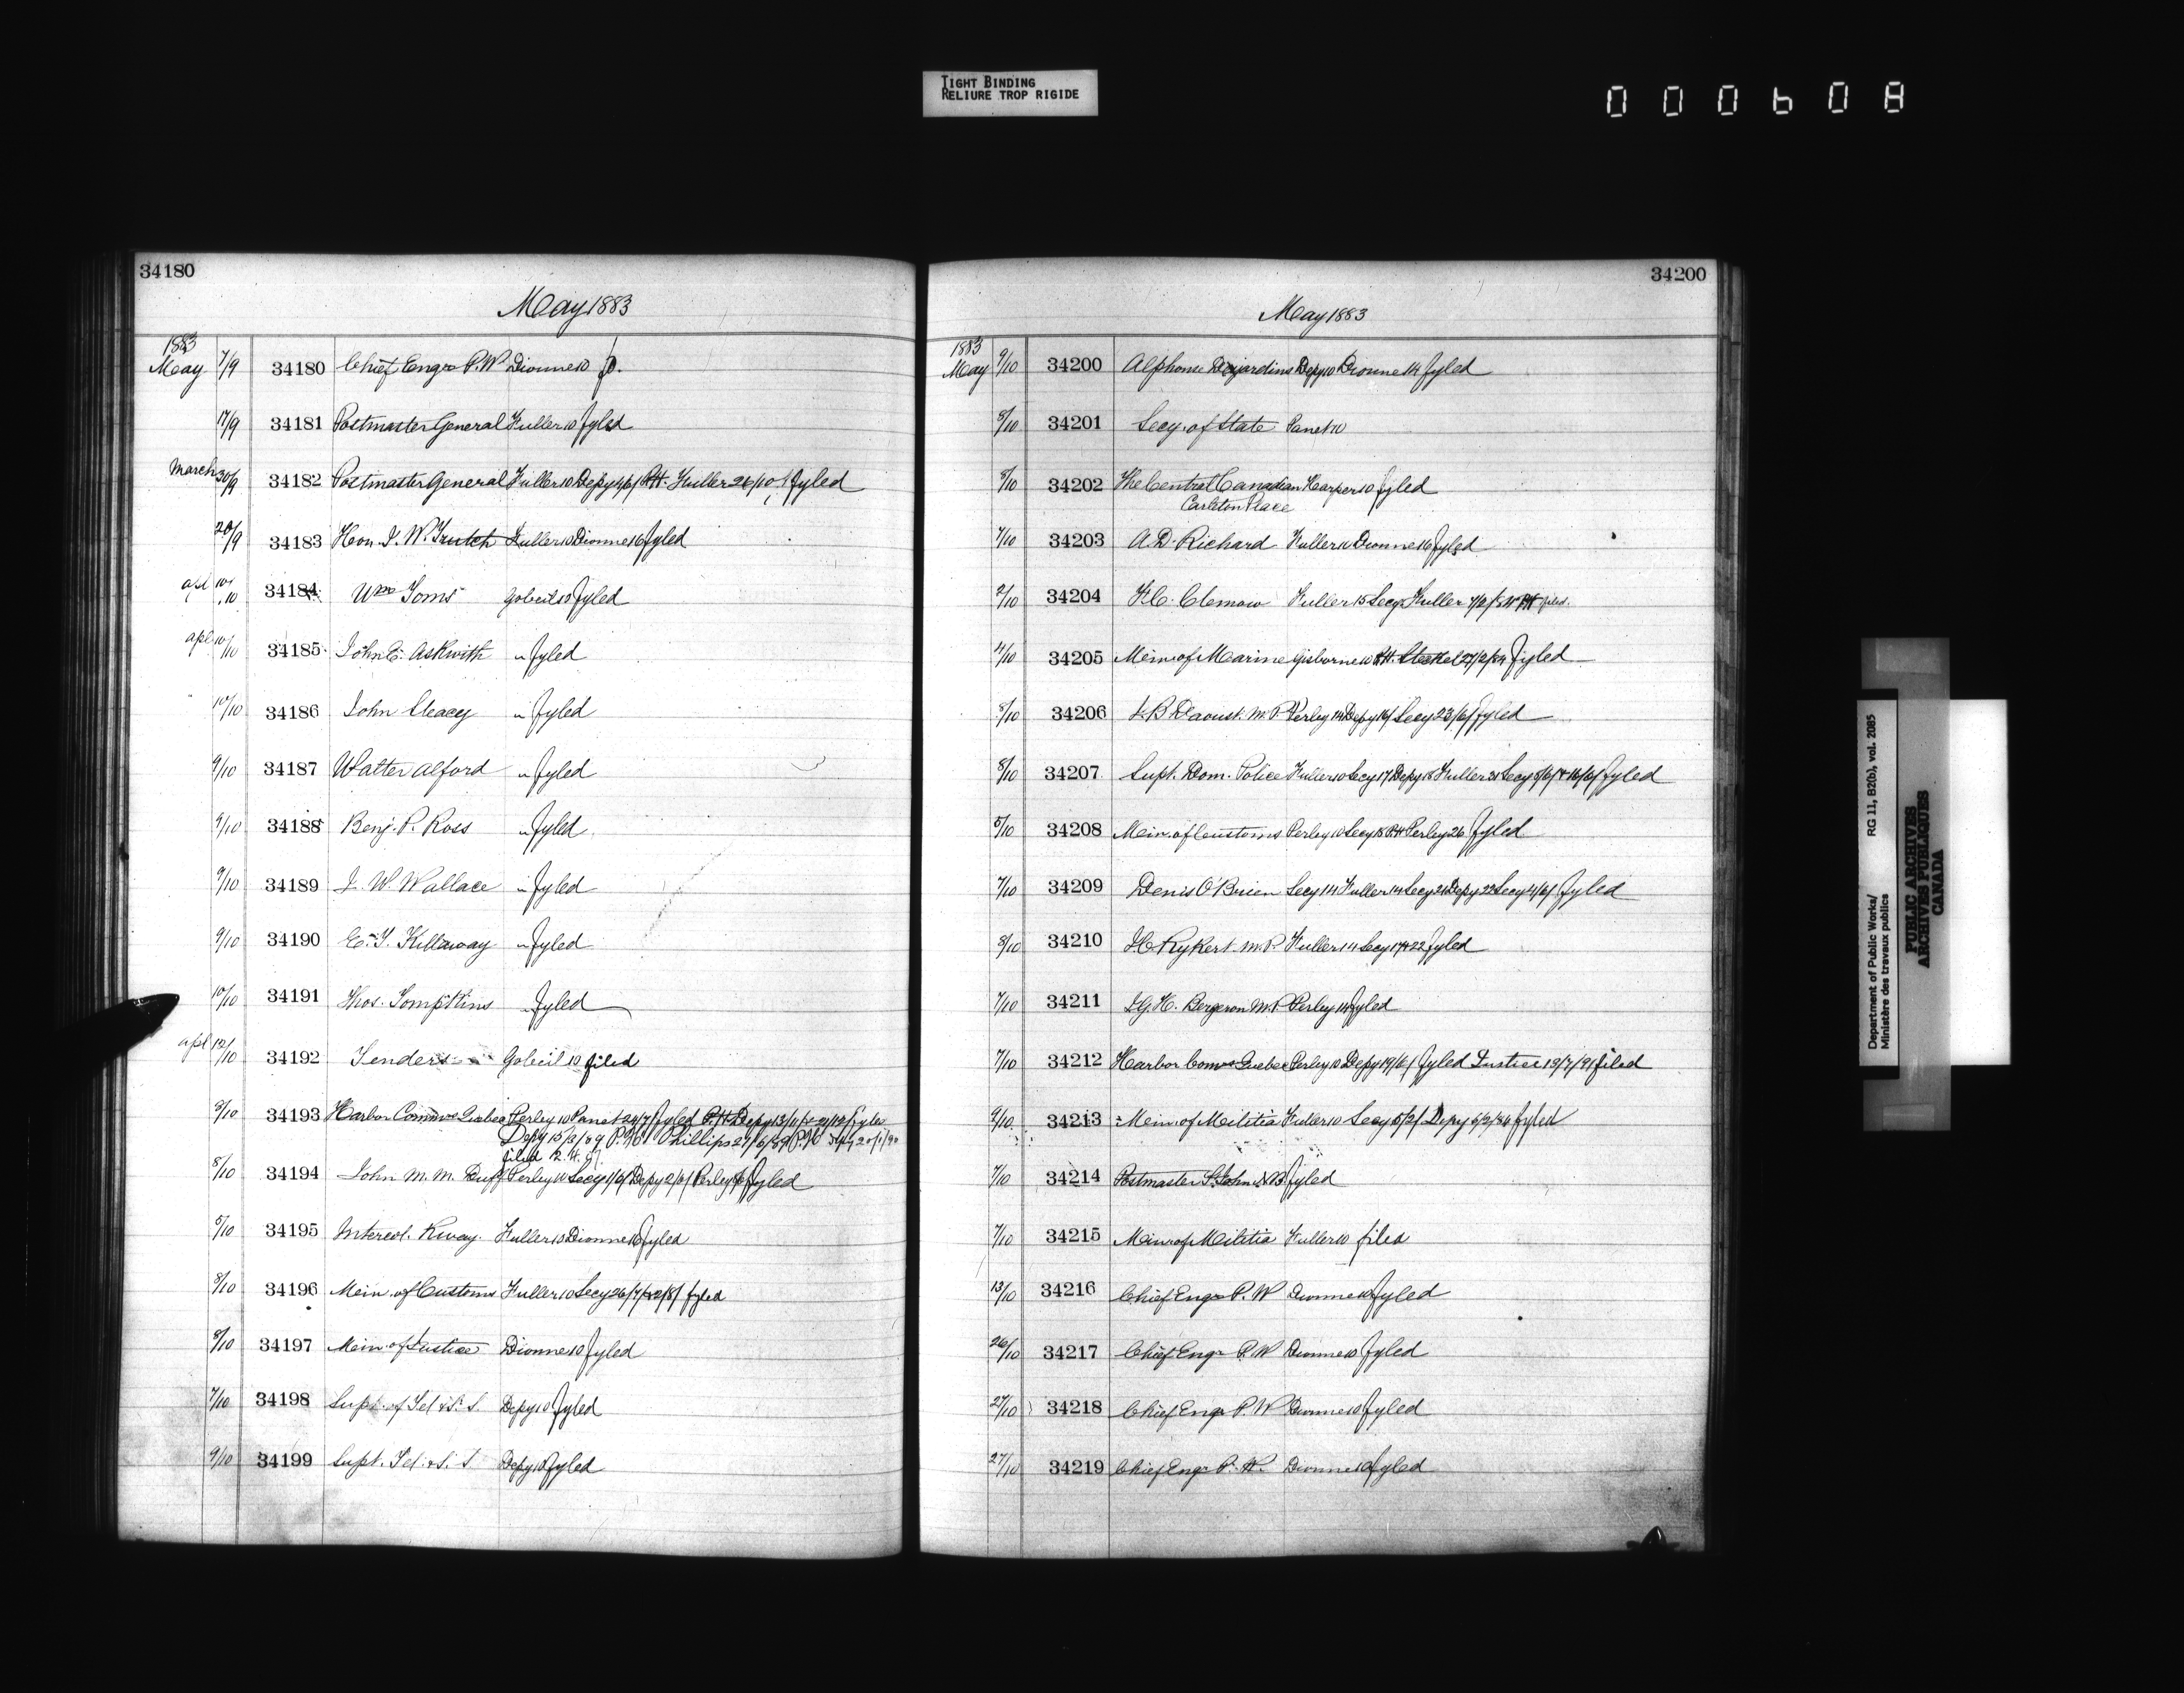 TIGHT BINDING
RELIURE TROP RIGIDE
000608
34180
May 1883
1883
May 7/9 34180 Chief Engr P.W. Dionne 10
17/9 34181 Postmaster General Fuller 10 fyled
March 30/9 34182 Postmaster General Fuller 10 Depy 4/6/ P.H. Fuller 26/10/ fyled
20/9 34183 Hon. J. W. Trutch Fuller 10 Dionne 16 fyled
apl 10/10 34184 Wm Toms Gobeil 10 fyled
apl 10/10 34185 John E. Askwith " fyled
" 10/10 34186 John Cleacey " fyled
9/10 34187 Walter Alford " fyled
9/10 34188 Benj. P. Ross " fyled
9/10 34189 J. W. Wallace " fyled
9/10 34190 E. T. Killaway " fyled
10/10 34191 Thos. Tompkins " fyled
apl 12/10 34192 Tenders Gobeil 10 filed
8/10 34193 Harbor Comrs Quebec Perley 10 Panet 24/7/ fyled P.H. Depy 13/11/ fyled
Depy 15/3/89 P.H. Phillips 27/6/89 P.H. 20/1/90
filed
8/10 34194 John M. M. Duff Perley 10 Secy 1/6/ Depy 2/6/ Perley fyled
5/10 34195 Intercol. Rway. Fuller 10 Dionne 16 fyled
8/10 34196 Min. of Customs Fuller 10 Secy 26/7/ fyled
8/10 34197 Min. of Justice Dionne 10 fyled
7/10 34198 Supt. of Tel & S. S. Depy 10 fyled
9/10 34199 Supt. Tel. & S. S Depy 10 fyled
34200
May 1883
1883
May 9/10 34200 Alphonse Desjardins Depy 10 Dionne 14 fyled
8/10 34201 Secy. of State Panet 10
8/10 34202 The Central Canadian Harper 10 fyled
Carleton Place
7/10 34203 A. D. Richard Fuller 10 Dionne 16 fyled
2/10 34204 F. C. Clemow Fuller 15 Secy Fuller filed.
4/10 34205 Min. of Marine Gisborne 10 P.H. Steckel 27/2/84 fyled
8/10 34206 J. B Daoust. M.P. Perley 14 Depy 16/ Secy 23/6/ fyled
8/10 34207 Supt. Dom. Police Fuller 10 Secy 17 Depy 18 Fuller 28 Secy 5/6/ & 16/6/ fyled
8/10 34208 Min. of Customs Perley 10 Secy 18 P.H. Perley 26 fyled
7/10 34209 Denis O'Brien Secy 14 Fuller 14 Secy 21 Depy 22 Secy 4/6/ fyled
8/10 34210 J. C. Rykert M.P. Fuller 14 Secy 17 & 22 fyled
7/10 34211 J. G. H. Bergeron M.P. Perley 14 fyled
7/10 34212 Harbor Comrs Quebec Perley 10 Depy 19/6/ fyled Justice 13/7/91 filed
9/10 34213 Min. of Militia Fuller 10 Secy 5/2/ Depy 6/2/84 fyled
7/10 34214 Postmaster St. John N.B. fyled
7/10 34215 Min of Militia Fuller 10 filed
13/10 34216 Chief Engr P. W Dionne 10 fyled
26/10 34217 Chief Engr P. W Dionne 10 fyled
27/10 34218 Chief Engr P. W Dionne 10 fyled
27/10 34219 Chief Engr P. W. Dionne 10 fyled
Department of Public Works/ RG 11, B2(b), vol. 2085
Ministère des travaux publics
PUBLIC ARCHIVES
ARCHIVES PUBLIQUES
CANADA